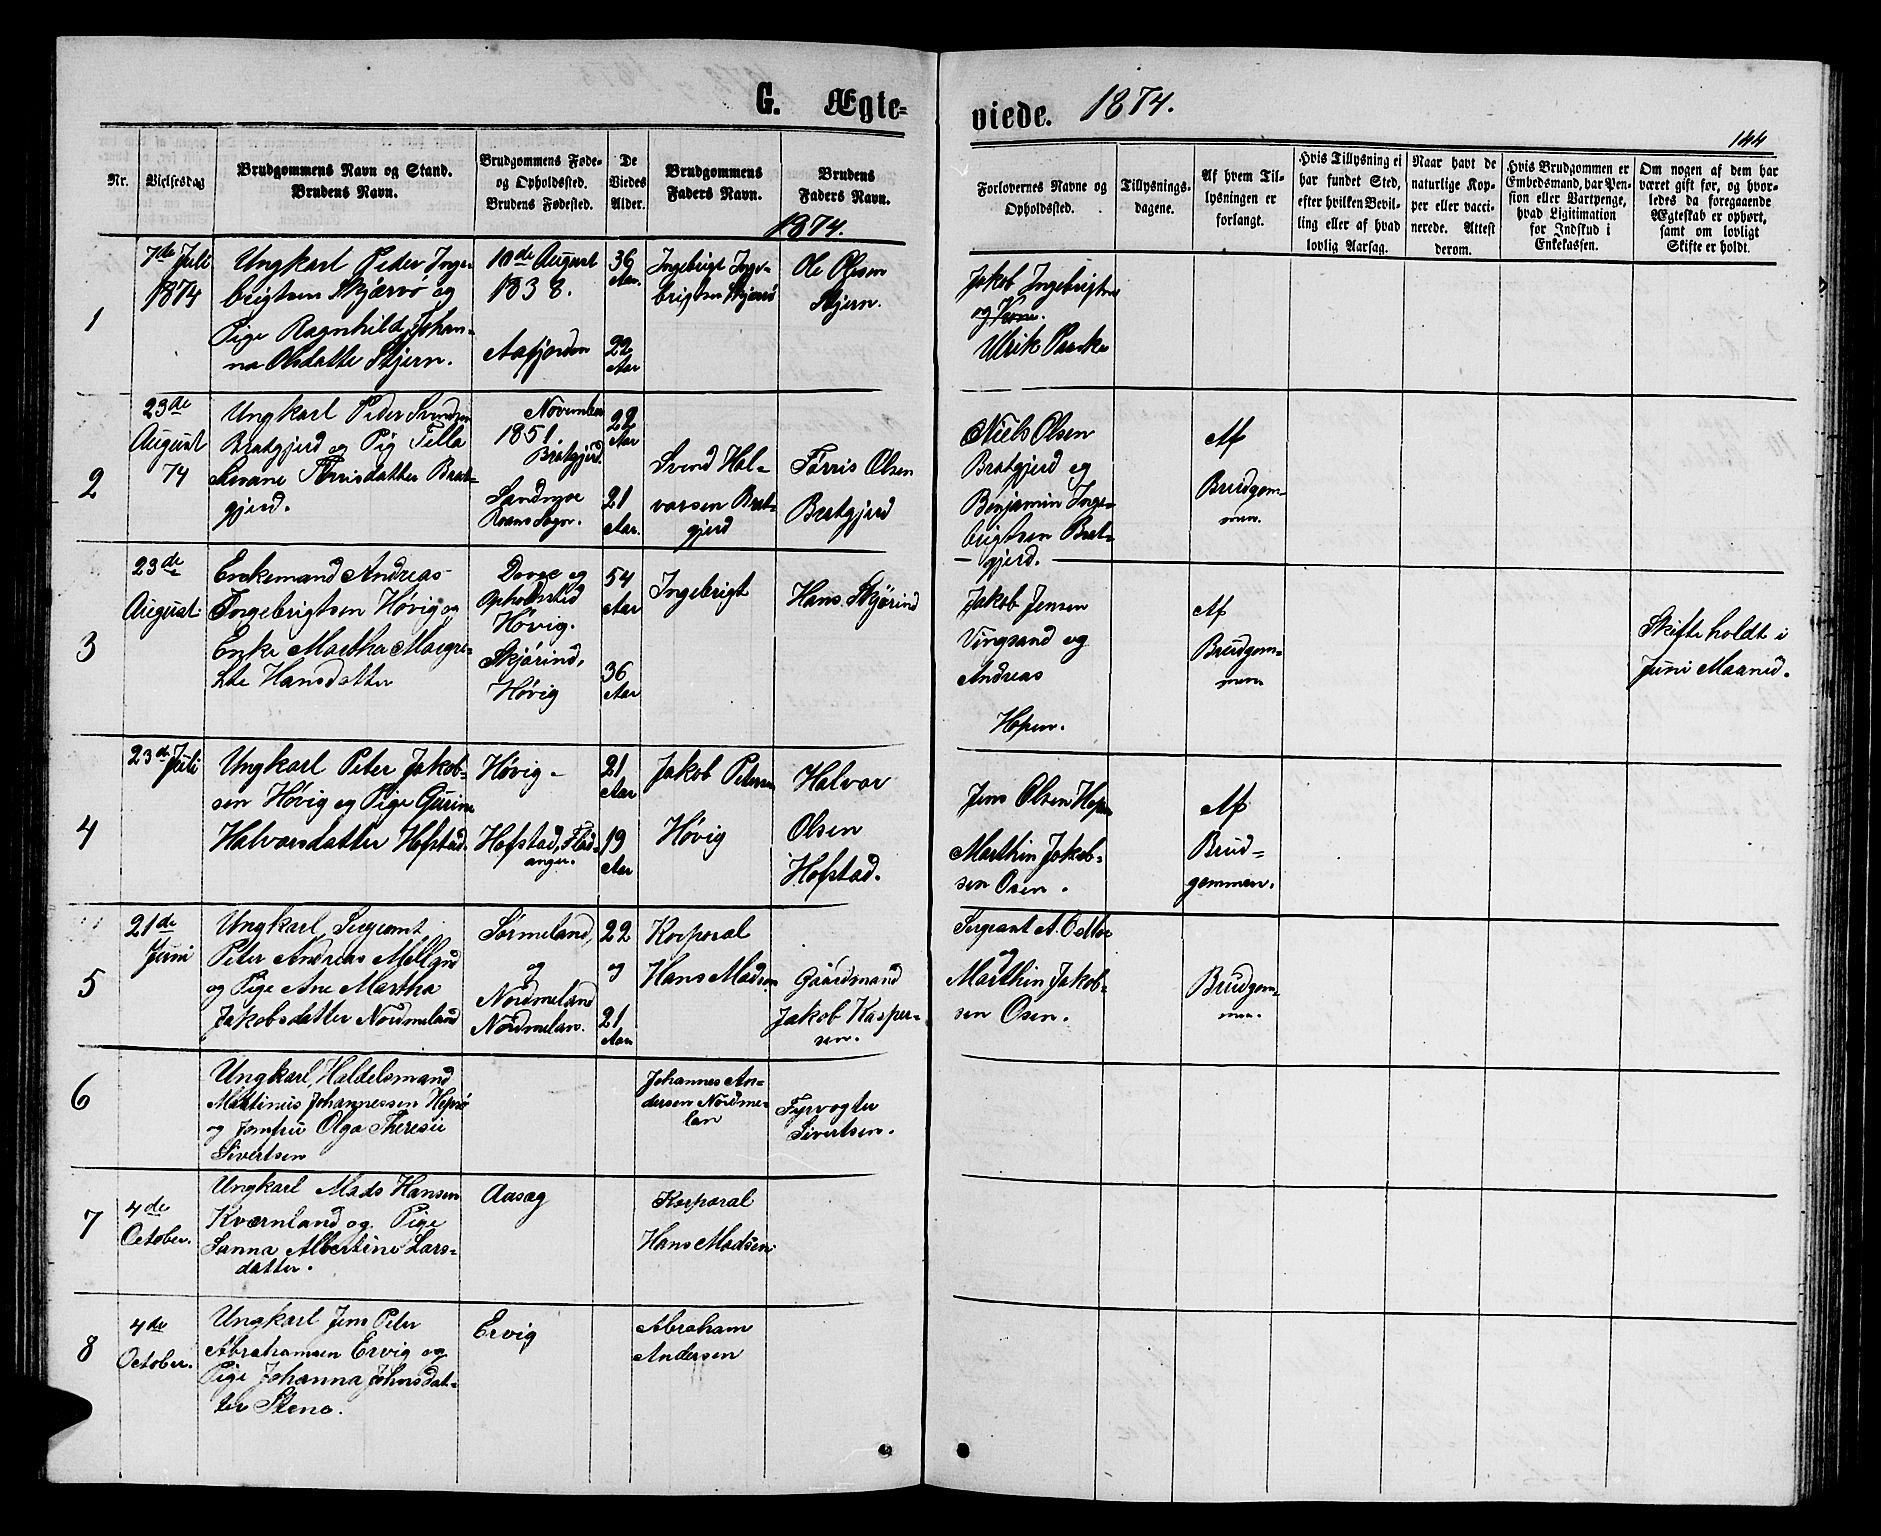 G. Ægte-
viede. 1874.
144
Nr.
Vielsesdag
Brudgommens Navn og Stand.
Brudens Navn.
Brudgommens Føde-
og Opholdssted.
Brudens Fødested.
De
Viedes
Alder.
Brudgommens
Faders Navn.
Brudens
Faders Navn.
Forlovernes Navne og
Opholdssted.
Tillysnings-
dagene.
Af hvem Til-
lysningen er
forlangt.
Hvis Tillysning ei
har fundet Sted,
efter hvilken Bevil-
ling eller af hvad
lovlig Aarsag.
Naar havt de
naturlige Kop-
per eller vacci-
nerede. Attest
derom.
Hvis Brudgommen er
Embedsmand, har Pen-
sion eller Vartpenge,
hvad Ligitimation
for Indskud i
Enkekassen.
Om nogen af dem har
været gift før, og hvor-
ledes da foregaaende
Ægteskab er ophørt,
samt om lovligt
Skifte er holdt.
1874.
1
7de Juli
1874
Ungkarl Peder Inge-
brigtsen Skjærvø og
Pige Ragnhild Johan-
na Olsdatte Stjern.
10de August
1838.
Aafjorden
36
Aar.
22
Aar
Ingebrigt Inge-
brigtsen Skjærvø
Ole Olsen
Stjern.
Jakob Ingebrigtsen
og
Ulrik
2
23de
August
74
Ungkarl Peder Svendsen
Bratgjerd og Pig Tella
Svane Torrisdatter Brat-
gjerd.
November
1851.
Bratgjerd.
Sandmoe
Roans Sogn.
22
Aar
21
Aar.
Svend Hal-
vorsen Brat-
gjerd
Torris Olsen
Bratgjerd
Niels Olsen
Bratgjerd og
Benjamin Inge-
brigtsen Brat-
gjerd.
Af
Brudgom-
men.
3
23de
August
Enkemand Andreas
Ingebrigtsen Høvig og
Enke Martha Maegre-
the Hansdatter
Dovre og
Opholdsted
Høvig.
Skjørind,
Høvig
54
Aar
36
Aar
Ingebrigt
Hans Skjørind
Jakob Jensen
Vingsand og
Andreas
Hopen.
Af
Brudgom-
men
Skifte holdt i
Juni Maaned.
4
23de Juli
Ungkarl Peter Jakob-
sen Høvig og Pige Gurine
Halvorsdatter Hofstad.
Høvig
Hofstad, Flad-
anger.
21
Aar
19
Aar
Jakob Petersen
Høvig
Halvor
Olsen
Hofstad.
Jens Olsen Hopen
Marthin Jakob-
sen Osen.
Af
Brud-
gommen.
5
21de
Juni
Ungkarl, Sergeant
Peter Andreas Mellgud
og Pige Ane Martha
Jakobsdatter Nordmeland
Sørmeland,
og
Nordmeland
Nordmelan.
22
og
21
Aar
Korporal
Hans Madsen
Gaardmand
Jakob Kasper-
sen.
Sergeant A. Osthoe
og
Marthin Jakob-
sen Osen.
Brudgom-
men.
6
Ungkarl, Haldelsmand
Martinus Johannessen Hepsø
og Jomfru Olga Therese
Sivertsen
Johannes An-
dersen Nordme-
lan
Fyrvogter
Sivertsen.
7
4de
October.
Ungkarl Mads Hansen
Kværnland og Pige
Sanna Albertine Lars-
datter.
Aasæg
Korporal
Hans Madsen
8
4de
October.
Ungkarl Jens Peter
Abrahamsen Ervig og
Pige Johanna Johnsdat-
ter Steno.
Ervig
Abraham
Andersen